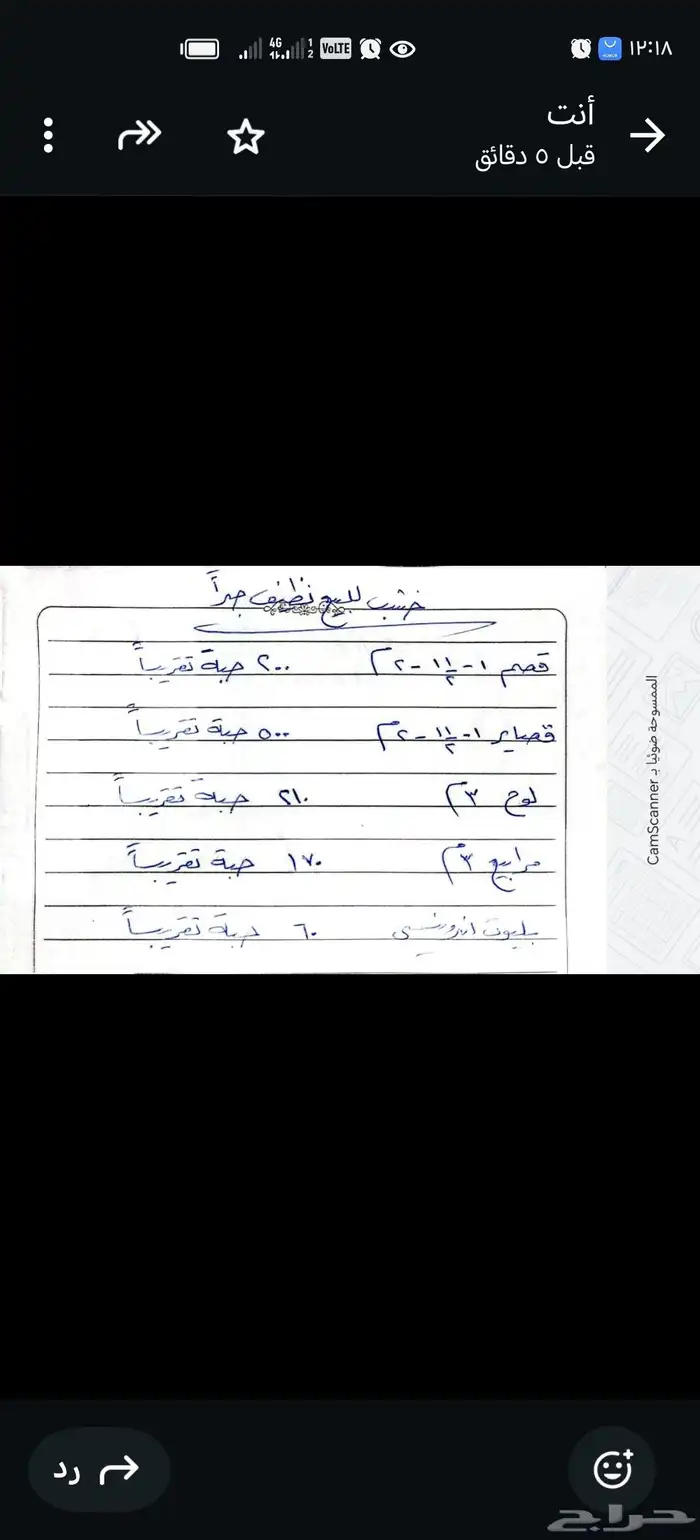 ١٢:١٨
4G
1
2
VoLTE
أنت
قبل ٥ دقائق
خشب للبيع نظيف جداً
قصم ١ - ١ ١/٢ - ٢م ٢٠٠ حبة تقريباً
قصاير ١ - ١ ١/٢ - ٢م ٥٠٠ حبة تقريباً
لوح ٣م ٢١٠ حبة تقريباً
مرابيع ٣م ١٧٠ حبة تقريباً
بليوت اندونيسي ٦٠ حبة تقريباً
الممسوحة ضوئيا بـ CamScanner
رد
حراج